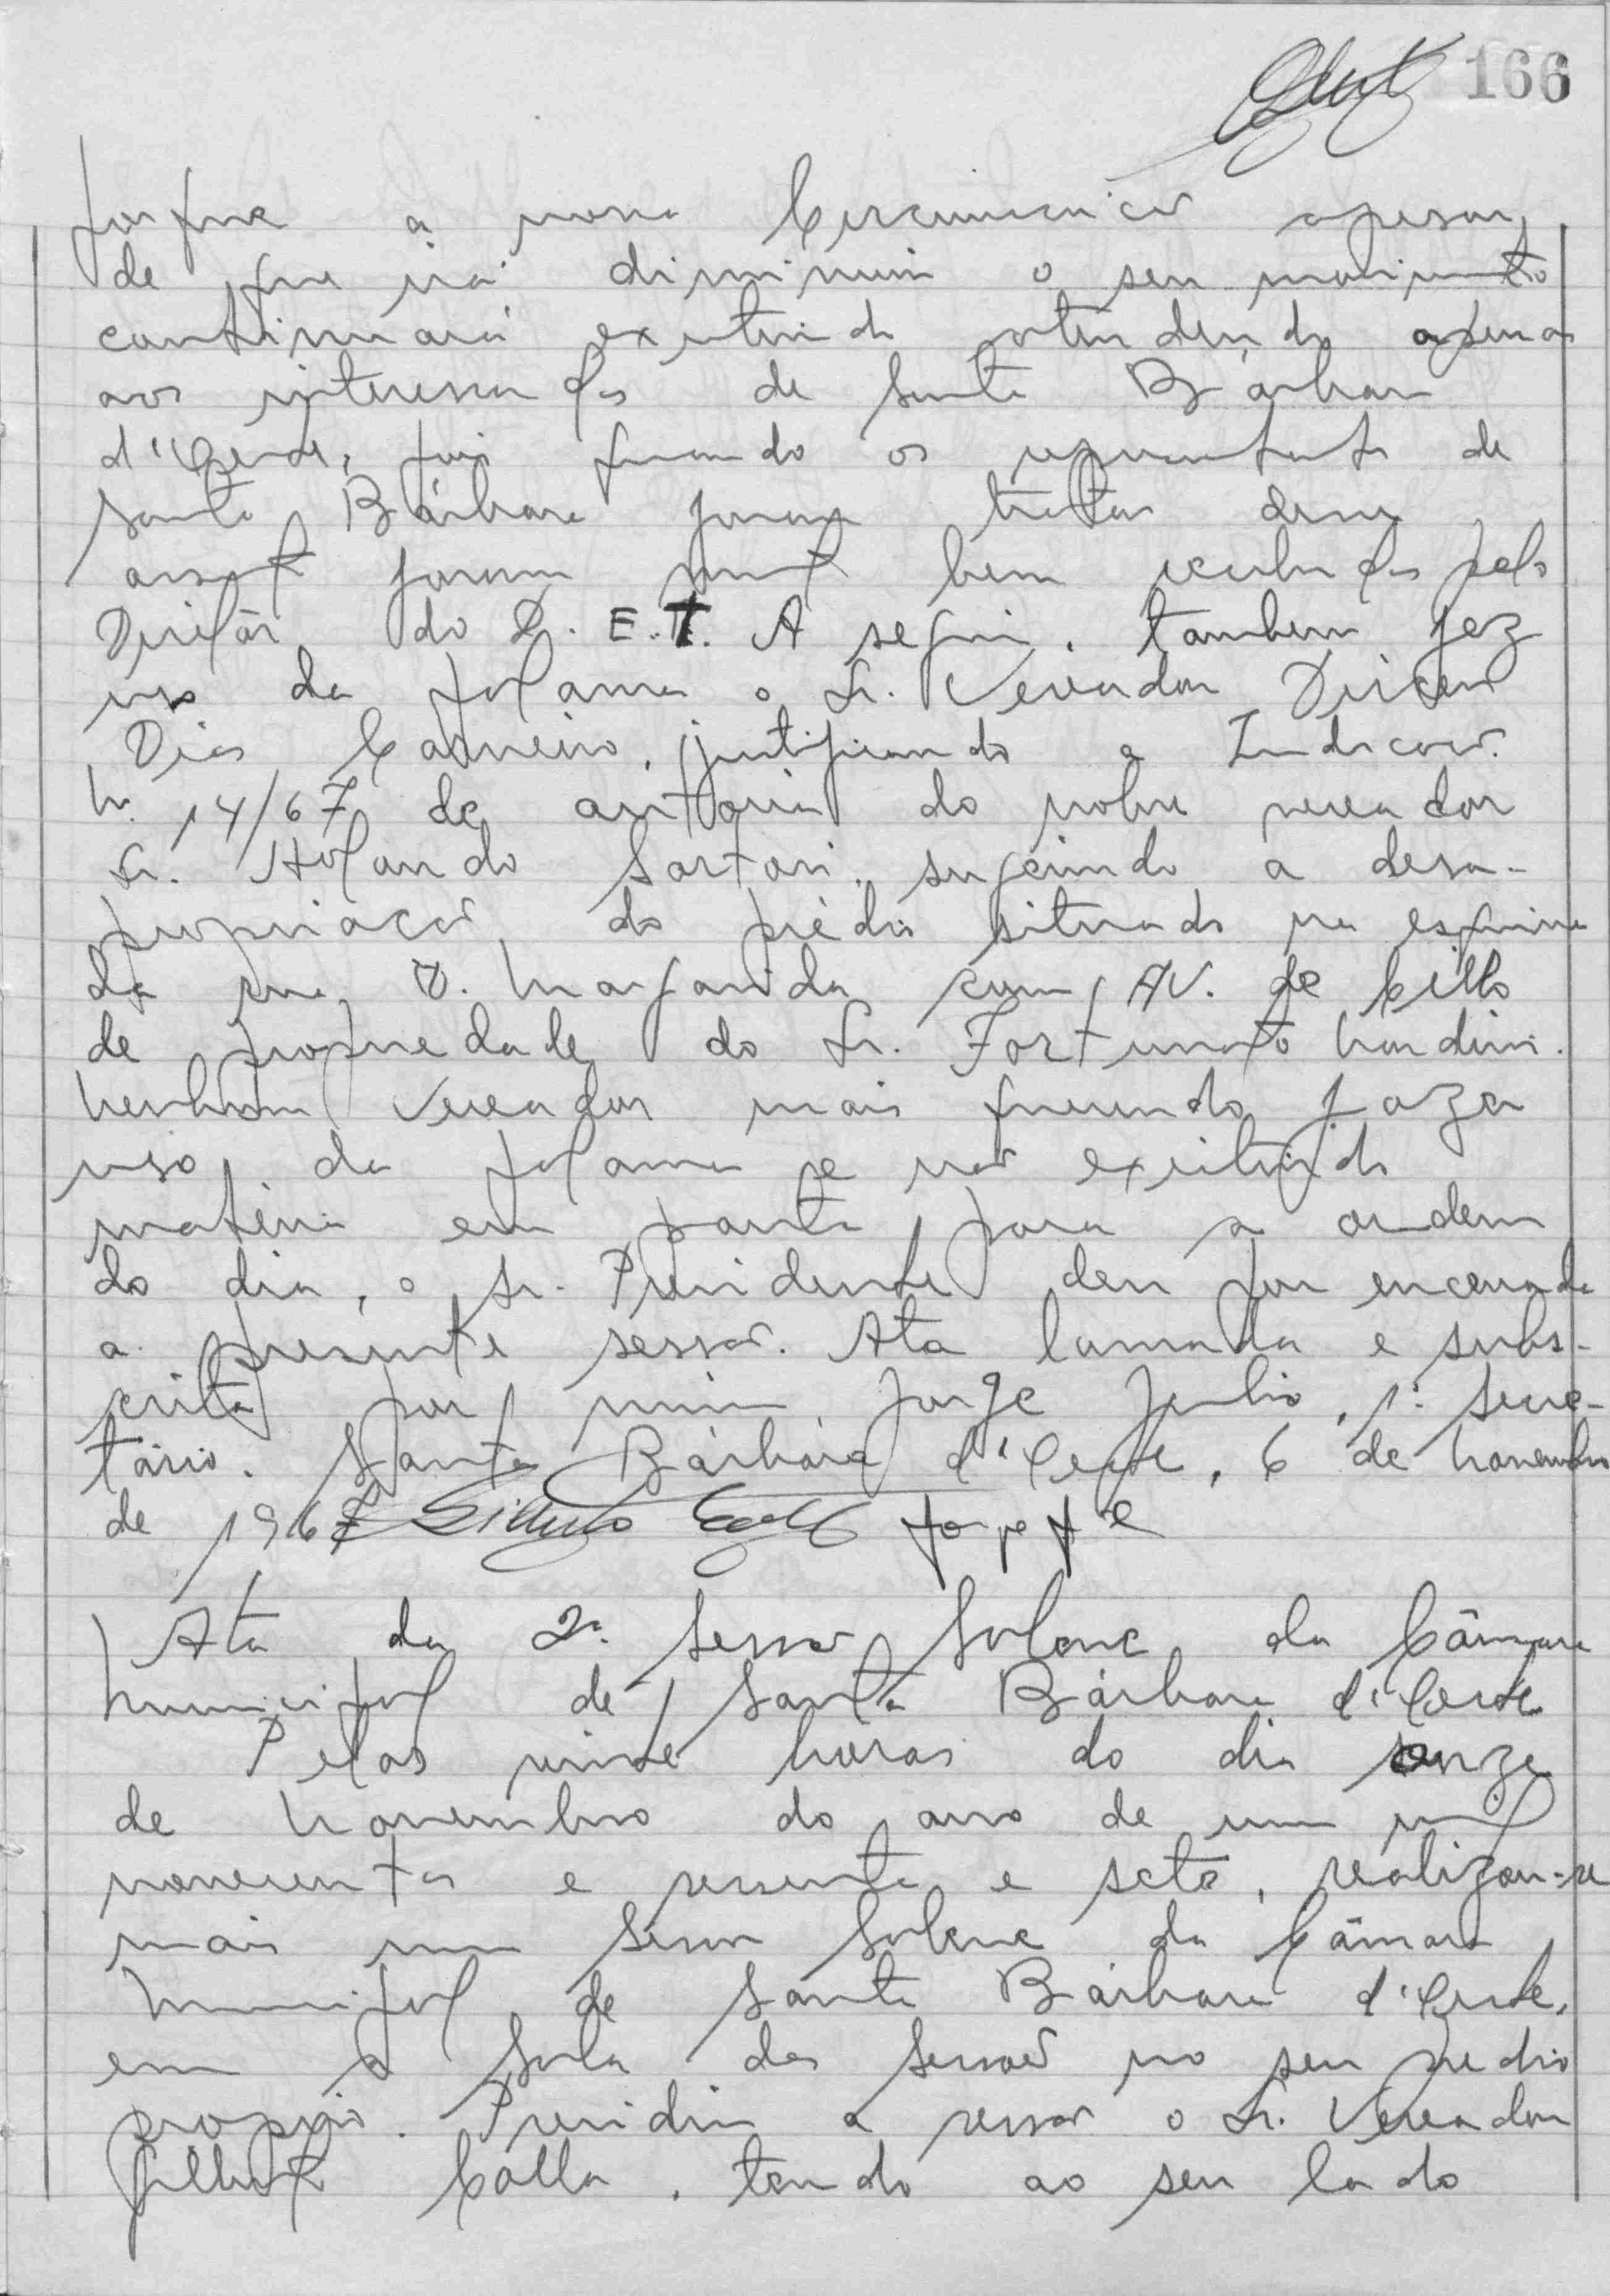 166
porque a nossa Circunscrição apesar
de que irá diminuir o seu movimento
continuará existindo atendendo apenas
aos interesses de Santa Bárbara
d'Oeste, pois quando os representantes de
Santa Bárbara foram tratar desse
assunto foram muito bem recebidos pelo
Diretor do D. E. T. A seguir, tambem fez
uso da palavra o Sr. Vereador Dirceu
Dias Carneiro, justificando a Indicação
N. 14/67 de autoria do nobre vereador
Sr. Holando Sartori, sugerindo a desa-
propriação do prédio situado na esquina
da rua D. Margarida com AV. de Cillo
de propriedade do Sr. Fortunato
Nenhum Vereador mais querendo fazer
uso da palavra e não existindo
matéria em pauta para a ordem
do dia, o Sr. Presidente deu por encerrada
a presente sessão. Ata lavrada e subs-
crita por mim Jorge Julio, 1º Secre-
tário. Santa Bárbara d'Oeste, 6 de Novembro
de 1967
Ata da 2ª Sessão Solene da Câmara
Municipal de Santa Bárbara d'Oeste
Pelas vinte horas do dia onze
de Novembro do ano de um mil
novecentos e sessenta e sete, realizou-se
mais uma Sessão Solene da Câmara
Municipal de Santa Bárbara d'Oeste,
em a Sala das Sessões no seu predio
proprio. Presidiu a sessão o Sr. Vereador
Gilberto Calla, tendo ao seu lado